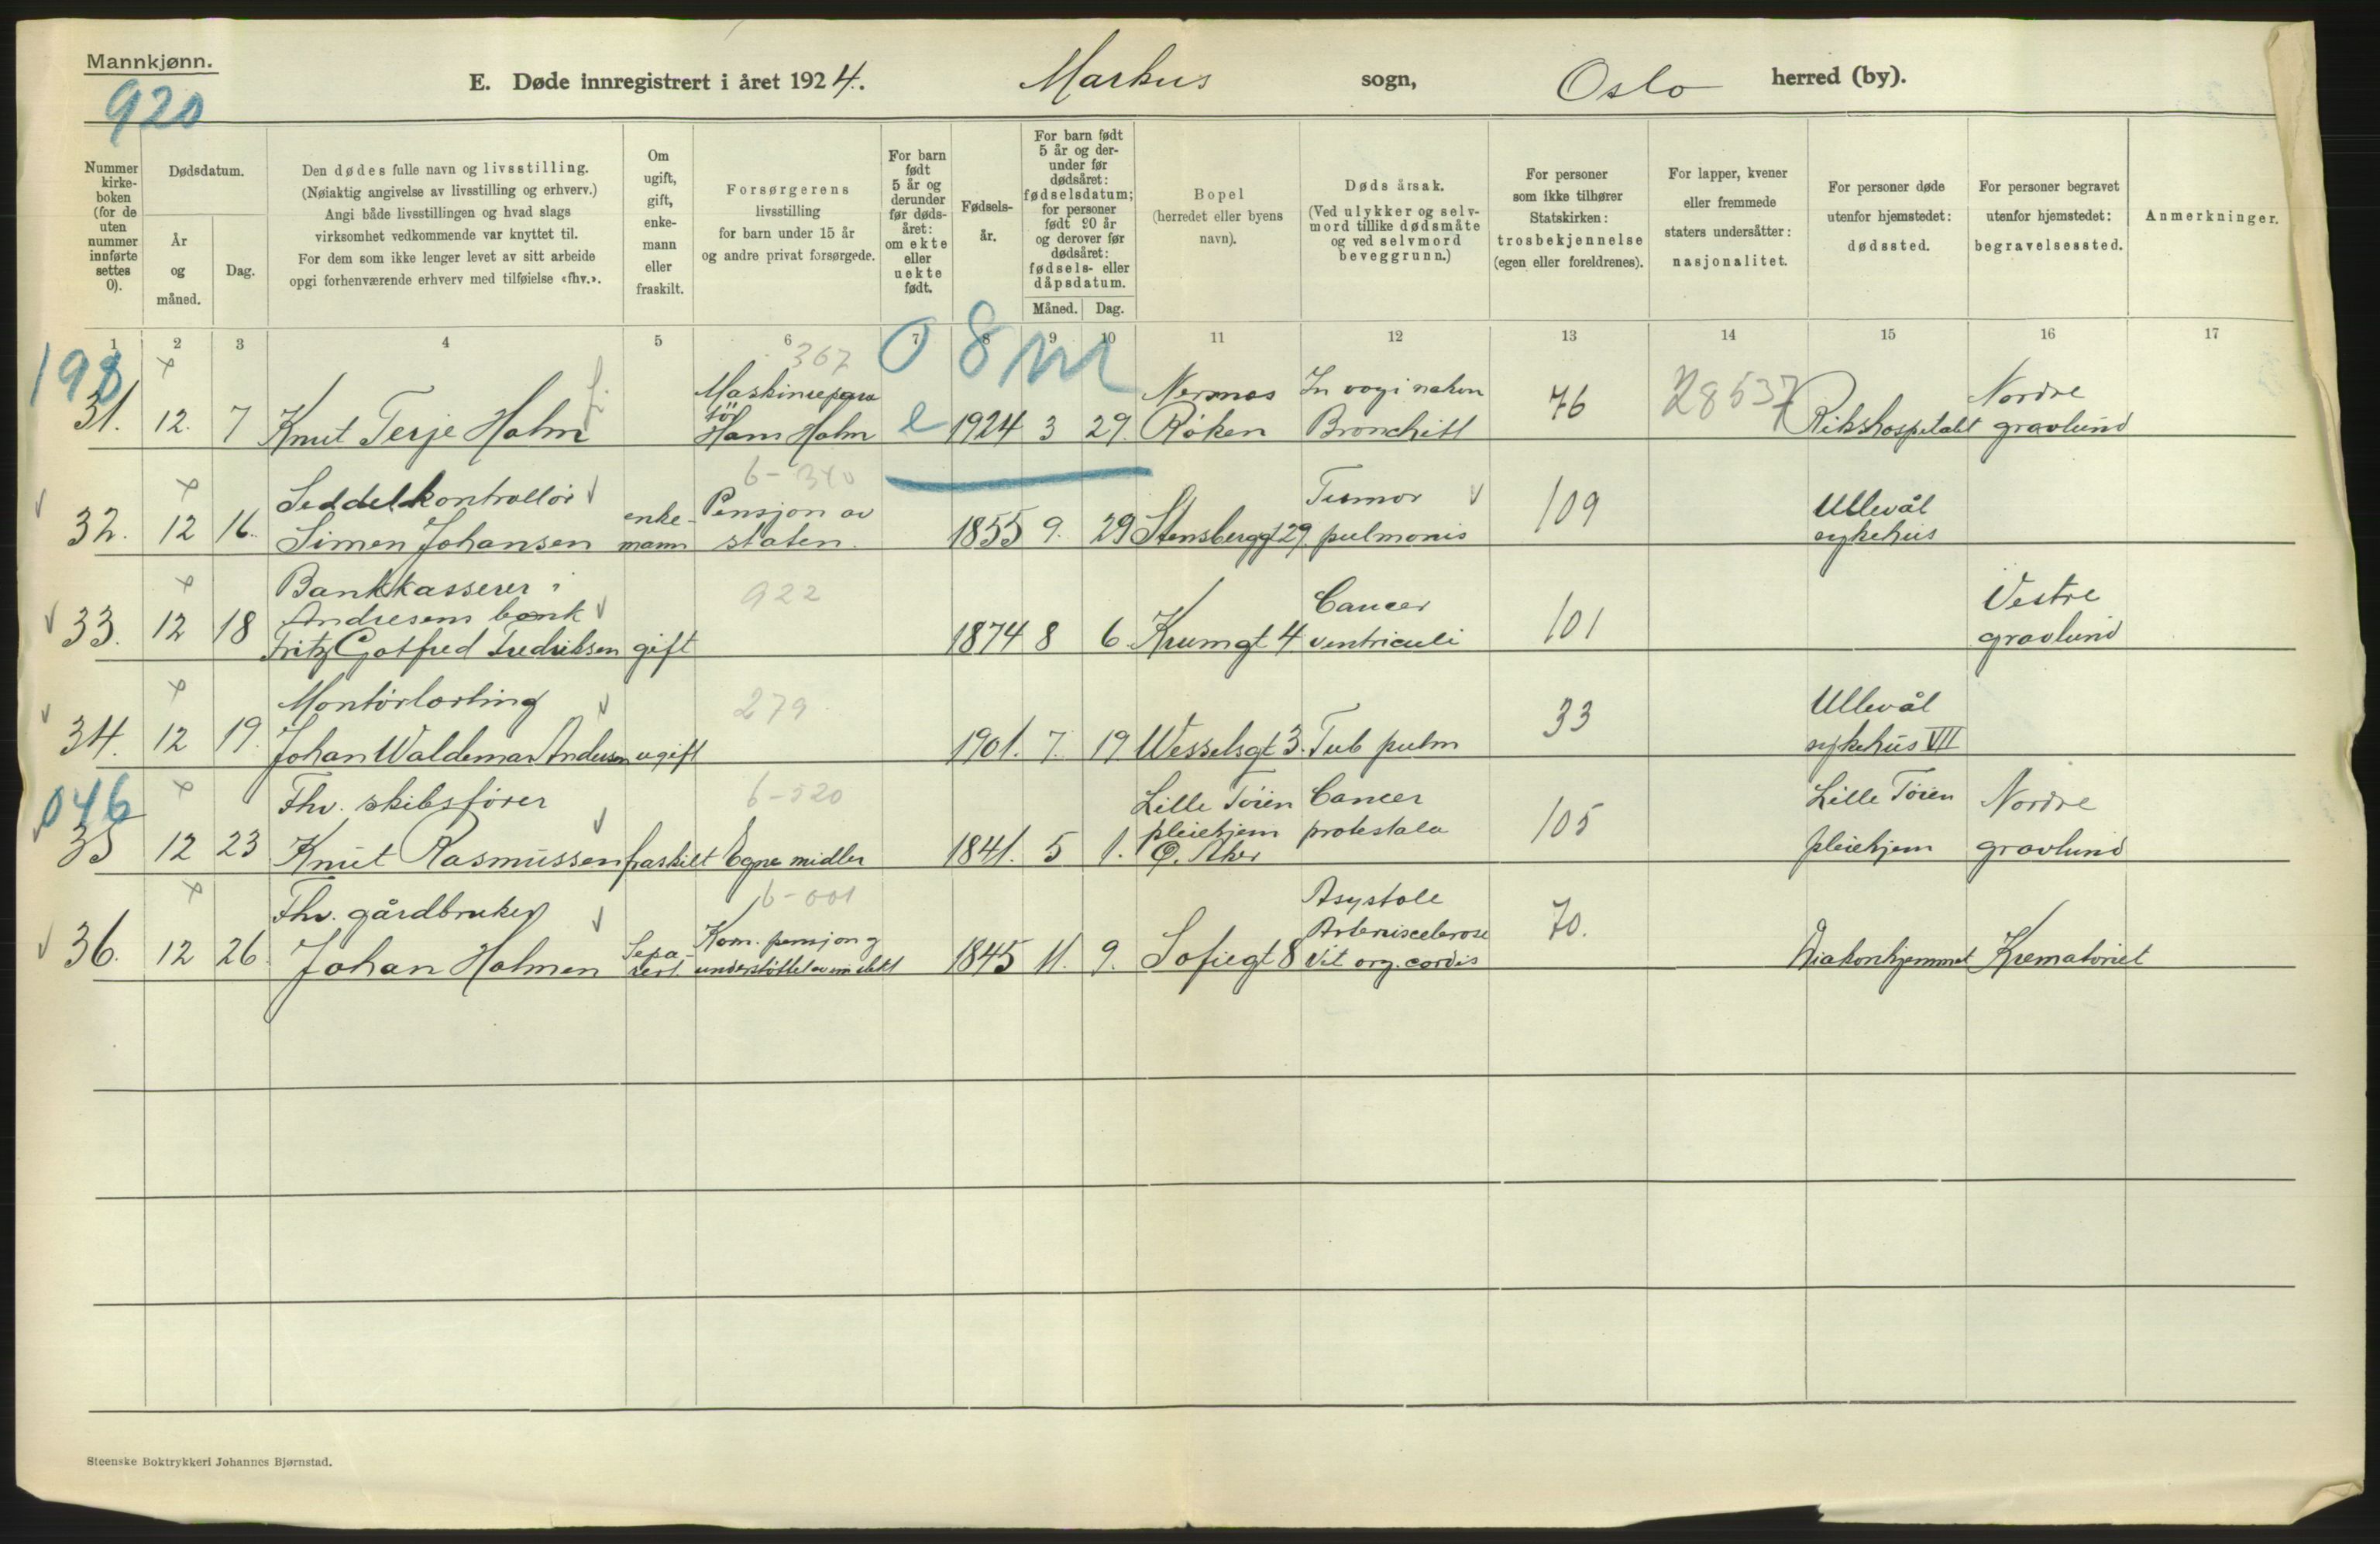 Mannkjønn.
920
E. Døde innregistrert i året 1924. Markus sogn, Oslo herred (by).
Nummer kirke-boken (for de uten nummer innførte settes 0).
Dødsdatum.
År og måned.
Dag.
Den dødes fulle navn og livsstilling.
(Nøiaktig angivelse av livsstilling og erhverv.)
Angi både livsstillingen og hvad slags
virksomhet vedkommende var knyttet til.
For dem som ikke lenger levet av sitt arbeide
opgi forhenværende erhverv med tilføielse «fhv.».
Om ugift, gift, enke-mann eller fraskilt.
Forsørgerens
livsstilling
for barn under 15 år
og andre privat forsørgede.
For barn født 5 år og derunder før døds-året: om ekte eller uekte født.
Fødsels-år.
For barn født 5 år og der-under før dødsåret: fødselsdatum; for personer født 90 år og derover før dødsåret: fødsels- eller dåpsdatum.
Måned. Dag.
Bopel
(herredet eller byens
navn).
Døds årsak.
(Ved ulykker og selv-
mord tillike dødsmåte
og ved selvmord
beveggrunn.)
For personer
som ikke tilhører
Statskirken:
trosbekjennelse
(egen eller foreldrenes).
For lapper, kvener
eller fremmede
staters undersåtter:
nasjonalitet.
For personer døde
utenfor hjemstedet:
dødssted.
For personer begravet
utenfor hjemstedet:
begravelsessted.
Anmerkninger.
1 2 3 4 5 6 7 8 9 10 11 12 13 14 15 16 17
198 367 0 8 m
31. 12. 7 Knut Terje Holm Maskinrepara
tör
Hans Holm e 1924 3 29. Nermas
Røken Bronchitt 76 28537 Rikshospitalet Nordre
gravlund
6-340
32. 12 16. Seddelkontrollör
Simen Johansen enke-
mann Pensjon av
staten. 1855 9. 29 Stensberggt 29. Tumor
pulmonis 109 Ullevål
sykehus
922
33. 12 18 Bankkasserer i
Andresens bank
Fritz Gotfred Fredriksen gift 1874 8 6. Krumgt 4 Cancer
ventriculi 101 Vestre
gravlund
279
34. 12 19. Montörlærling
Johan Waldemar Andersen ugift 1901. 7. 19 Wesselsgt 3. Tub pulm 33 Ullevål
sykehus VII
046 6-520
35 12 23 Fhv. skibsförer
Knut Rasmussen fraskilt Egne midler 1841. 5 1. Lille Töien
pleiehjem
Ø. Aker Cancer
prostata 105 Lille Töien
pleiehjem Nordre
gravlund
6-001
36. 12 26. Fhv. gårdbruker
Johan Holmen Sepa-
rert Kom. pensjon og
understöttet av sin slekt 1845 11. 9. Sofiegt 8 Asystole
Arteriosclerose
Vit org. cordis 70. Diakonhjemmet Krematoriet
Steenske Boktrykkeri Johannes Bjørnstad.